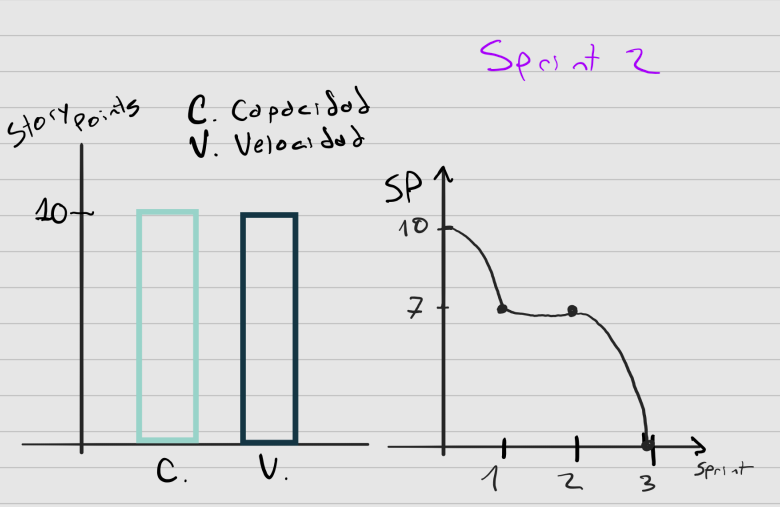 Sprint 2
Story points
C. Capacidad
V. Velocidad
10
C.
V.
SP
10
7
1
2
3
Sprint